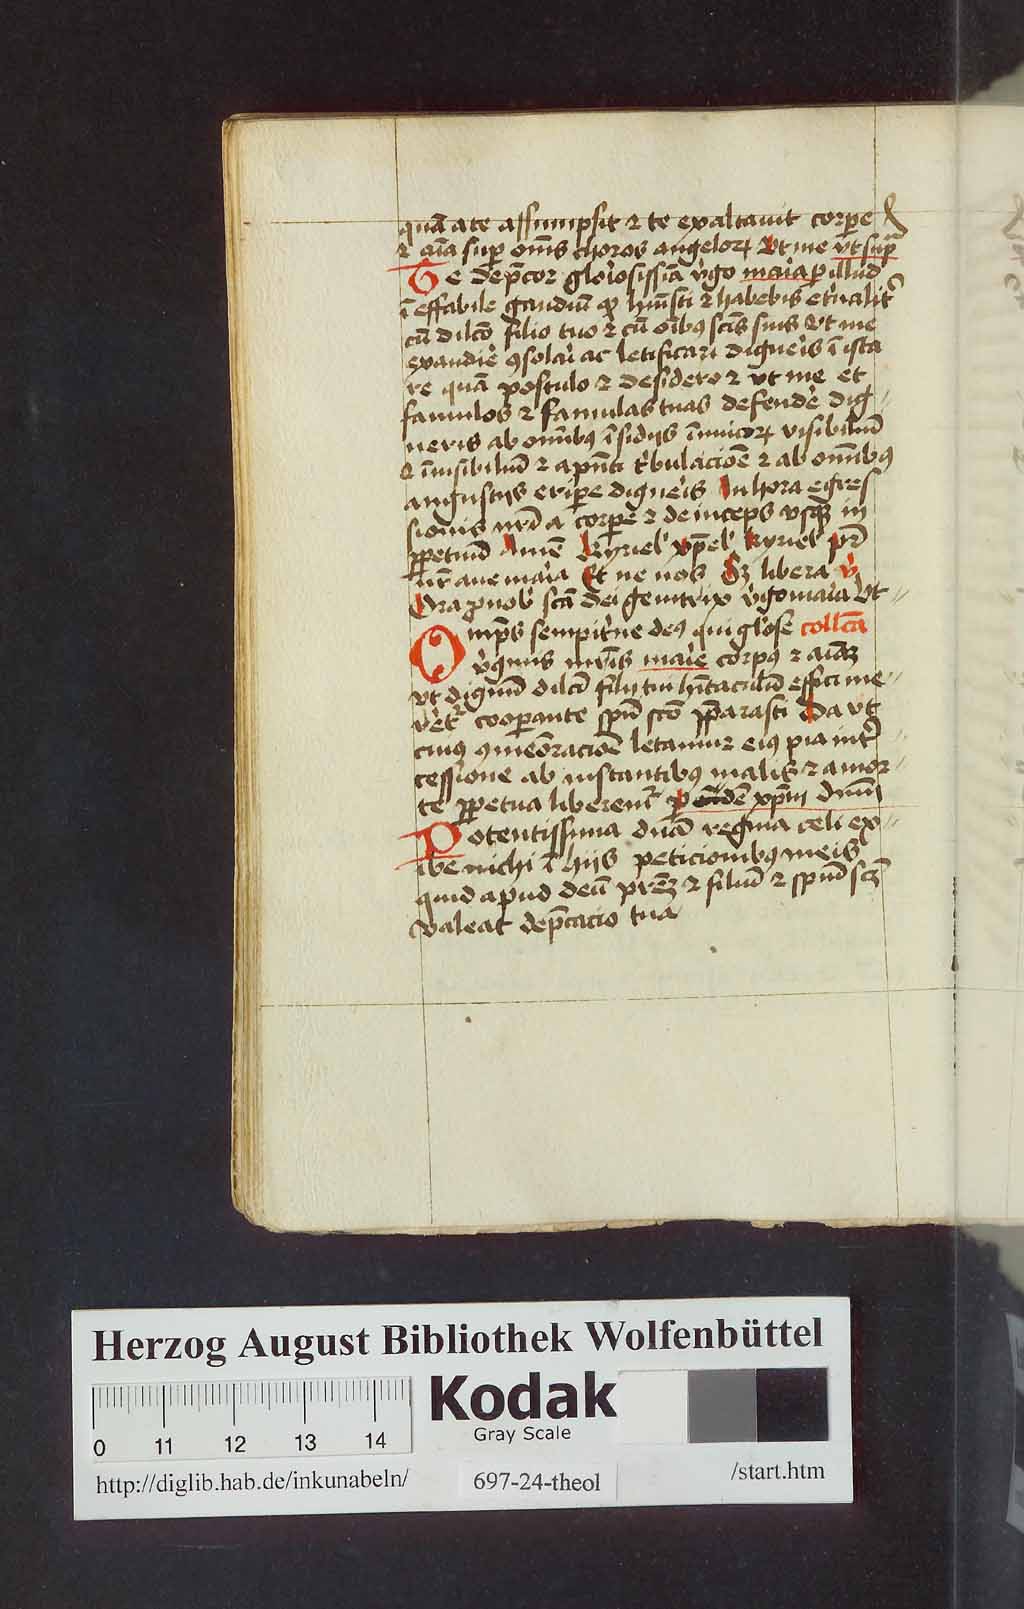 quā a te assumpsit ⁊ te exaltauit corꝑe
⁊ aīa suꝑ om̄s choros angeloꝝ Ut me vt supͣ
Te dep̄cor gloͥosissīa v̓go maͥa ꝑ illud
īeffabile gaudiū qḋ huīsti ⁊ habebis et̓nalit̓
cū dilc̄o filio tuo ⁊ cū oībꝯ sc̄is suis Ut me
exaudiē ꝯsolaͥ ac letificari digneͥs ī ista
re quā postulo ⁊ desidero ⁊ vt me et
famulos ⁊ famulas tuas defendē dig
neris ab om̄ibꝯ īsidijs īimicoꝝ visibiliū
⁊ īuisibiliū ⁊ a pn̄ti t̓bulacioē ⁊ ab om̄ibꝯ
angustijs eriꝑe digneͥs In hora egres
sionis nr̄i a corꝑe ⁊ deinceps vsqꝫ in
ꝑpetuū Amē Kyriel' xp̄el' kyriel' pr̄
nr̄ aue maͥa Et ne nos Sꝫ libera v̓
Ora ꝓ nob' sc̄a dei genitrix v̓go maͥa Ut
Omp̄s sempit̓ne deꝯ qui glͥose coll̄ca
v̓ginis mr̄is maͥe corpꝯ ⁊ aīaꝫ
vt dignū dilc̄i filij tui hītaculū effici me
rēt̓ cooꝑante spū sc̄o p̄parasti Da vt
cuiꝯ ꝯmeōracioē letamur eiꝯ pia int̓
cessione ab instantibꝯ malis ⁊ a mor
te ꝑpetua liberemͬ ꝑ eūdē xp̄m dnm̄
Potentissima dn̄a regina celi ex
ibe michi ī hijs peticionibꝯ meis
quid apud deū prēꝫ ⁊ filiū ⁊ spūm sc̄ꝫ
valeat dep̄cacio tua
Herzog August Bibliothek Wolfenbüttel
0 11 12 13 14
Kodak
Gray Scale
http://diglib.hab.de/inkunabeln/ 697-24-theol /start.htm